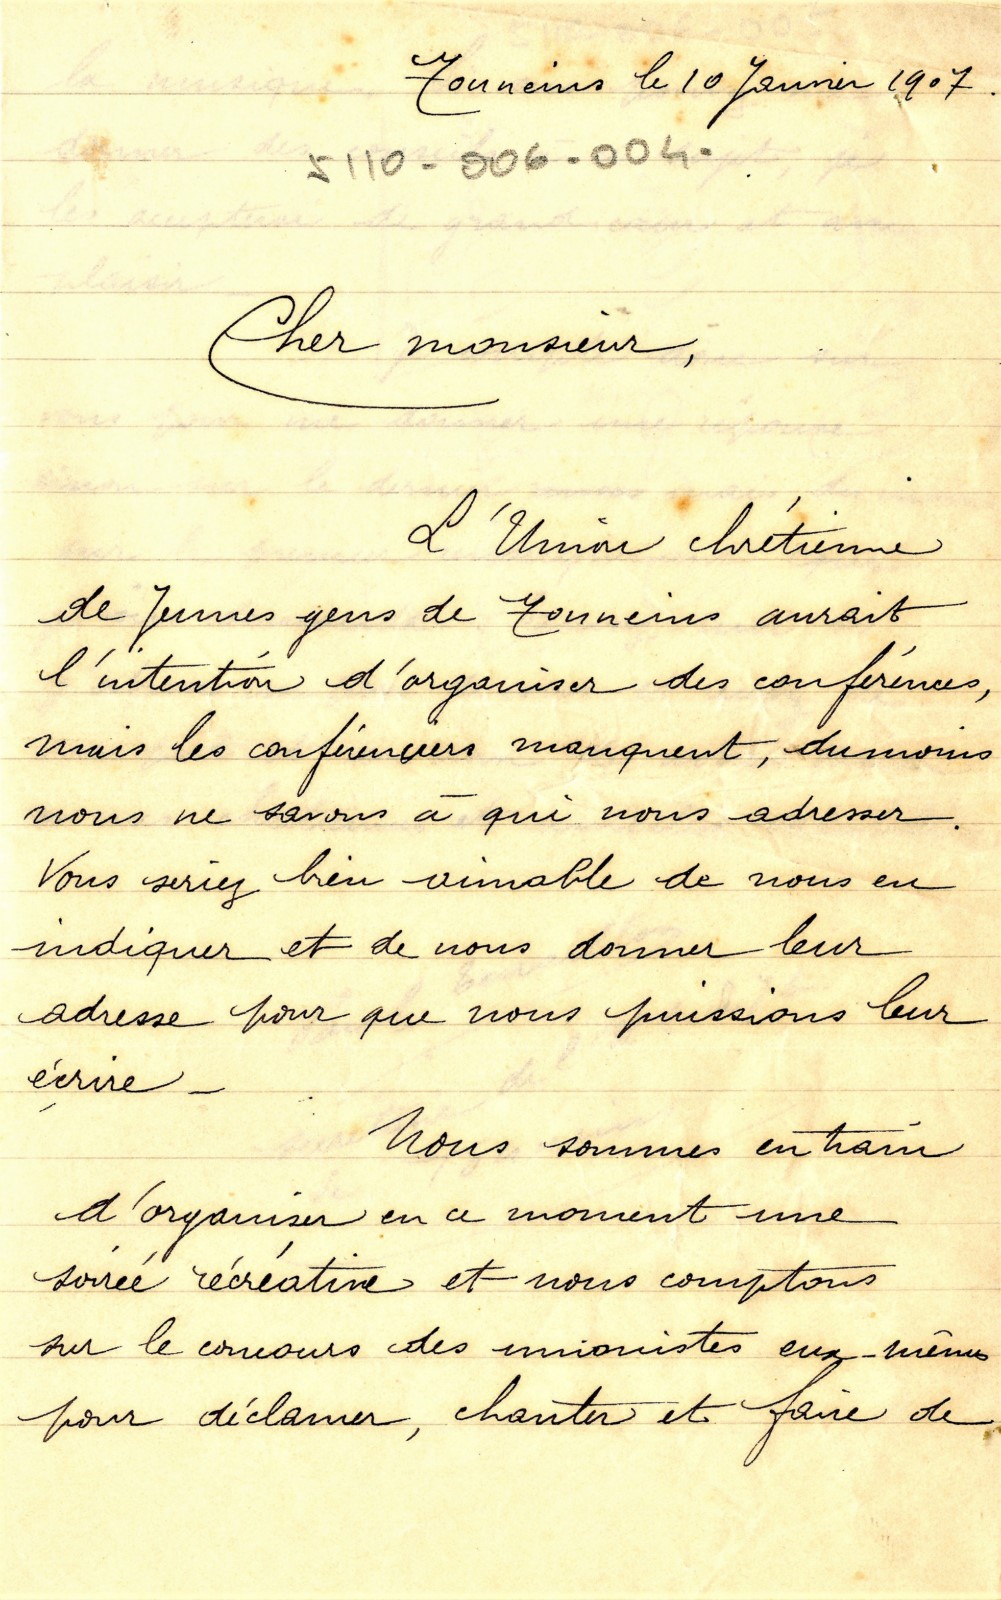 Tonneins le 10 Janvier 1907.
5110-006-004.
Cher monsieur,
L'Union chrétienne
de Jeunes gens de Tonneins aurait
l'intention d'organiser des conférences,
mais les conférenciers manquent, dumoins
nous ne savons à qui nous adresser.
Vous seriez bien aimable de nous en
indiquer et de nous donner leur
adresse pour que nous puissions leur
écrire -
Nous sommes entrain
d'organiser en ce moment une
soirée récréative et nous comptons
sur le concours des unionistes eux-mêmes
pour déclamer, chanter et faire de